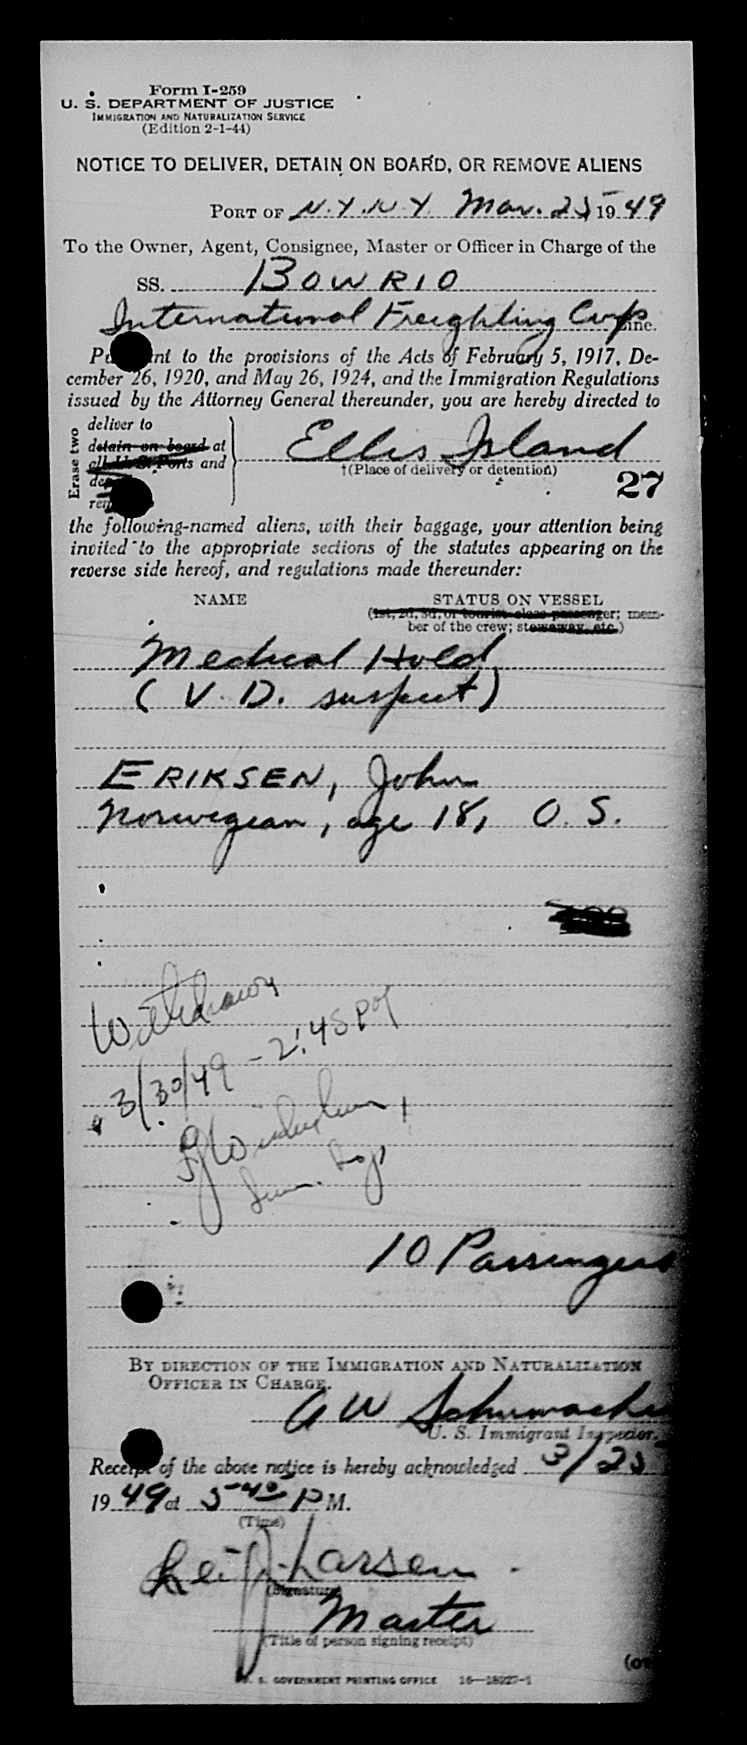 Form I-259
U. S. DEPARTMENT OF JUSTICE
IMMIGRATION AND NATURALIZATION SERVICE
(Edition 2-1-44)
NOTICE TO DELIVER, DETAIN ON BOARD, OR REMOVE ALIENS
PORT OF N.Y. N.Y. Mar. 25 1949
To the Owner, Agent, Consignee, Master or Officer in Charge of the
SS. BOWRIO
International Freighting Corp ine.
Pu nt to the provisions of the Acts of February 5, 1917, De-
cember 26, 1920, and May 26, 1924, and the Immigration Regulations
issued by the Attorney General thereunder, you are hereby directed to
Erase two
deliver to
detain on board at
all U. S. Ports and
Ellis Island
†(Place of delivery or detention)
27
the following-named aliens, with their baggage, your attention being
invited to the appropriate sections of the statutes appearing on the
reverse side hereof, and regulations made thereunder:
NAME STATUS ON VESSEL
(1st, 2d, 3d, or tourist class passenger; mem-
ber of the crew; stowaway, etc.)
Medical Hold
(V.D. suspect)
ERIKSEN, John
Norwegian, age 18, O.S.
Withdrawn
3/30/49 - 2:45 P
10 Passengers
BY DIRECTION OF THE IMMIGRATION AND NATURALIZATION
OFFICER IN CHARGE.
A W Schumacher
U. S. Immigrant Inspector.
Receipt of the above notice is hereby acknowledged 3/25
1949 at 5-40 P M.
(Time)
Leif Larsen
(Signature)
Master
(Title of person signing receipt)
U. S. GOVERNMENT PRINTING OFFICE 16—18227-1